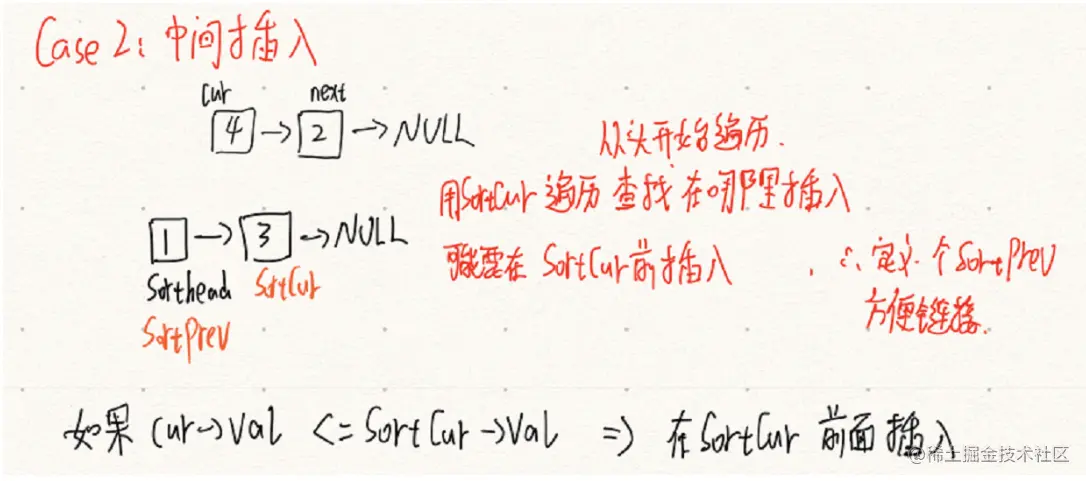 Case 2: 中间插入
cur next
4 → 2 → NULL
从头开始遍历.
用SortCur 遍历 查找 在哪里插入
1 → 3 → NULL
需要在 SortCur前插入 , ∴ 定义个SortPrev
方便链接.
Sorthead SortCur
SortPrev
如果 Cur→Val <= SortCur→Val => 在SortCur 前面插入
@稀土掘金技术社区